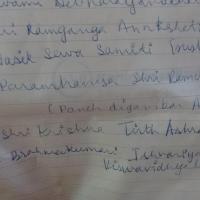 wami
ri Ramganga Annkshet
asik Sewa Samiti Trust
Paramhansa Shri Ram
(Panch digambar A
Shri Krishna Tirth Ashra
Brahmakumari Ishwariya
Vishwavidhya